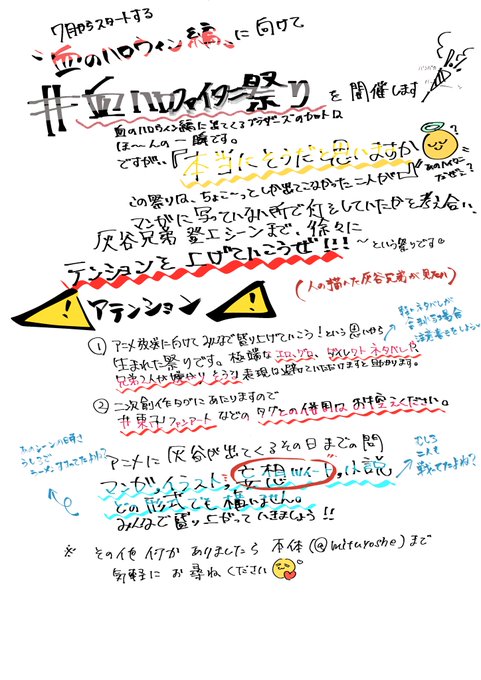 7月からスタートする
"血のハロウィン編"に向けて
#血ハロファイター祭り を開催します
血のハロウィン編に出てくるブラザーズのカットは
ほ〜んの一瞬です。
ですが、『本当にそうだと思いますか
?
この祭りは、ちょこ〜っとしか出てこなかった二人が
マンガに写っていない所で何をしていたかを考え合い、
灰谷兄弟 登上シーンまで、徐々に
テンションを上げていこうぜ!!!
〜という祭りです。
(人の描いた灰谷兄弟が見たい)
! アテンション !
① アニメ放送に向けてみんなで盛り上げていこう!という思いから
生まれた祭りです。極端なエロ、グロ、ダイレクトネタバレや
兄弟2人が嫌がりそうな表現は避けていただけますと助かります。
② 二次創作タグにあたりますので
#東卍ファンアート などのタグとの併用はお控えください。
アニメに灰谷が出てくるその日までの間
マンガ、イラスト、妄想ツイート、小説
どの形式でも構いません。
みんなで盛り上がっていきましょう!!
むしろ
二人も
※ その他 何か ありましたら 本体(@mituyoshe)まで
気軽に お尋ねください